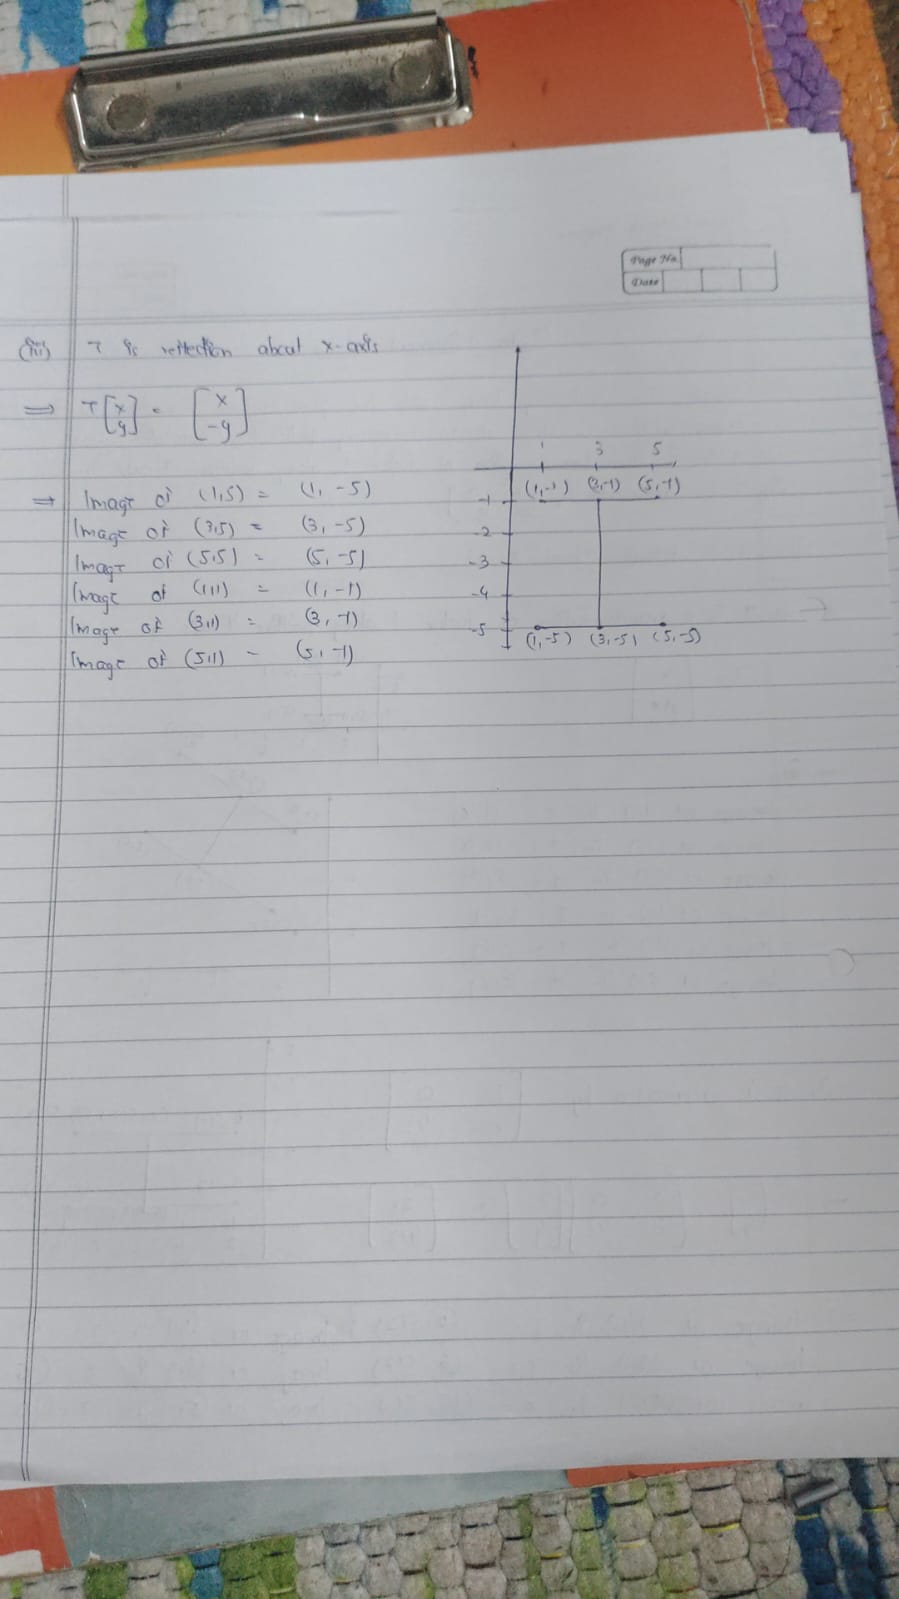 Page No.
Date
(iii) T is reflection about x-axis
⇒ T[x y] = [x -y]
⇒ Image of (1,5) = (1, -5)
Image of (3,5) = (3, -5)
Image of (5,5) = (5, -5)
Image of (1,1) = (1, -1)
Image of (3,1) = (3, -1)
Image of (5,1) = (5, -1)
1 3 5
(1,-1) (3,-1) (5,-1)
-1
-2
-3
-4
-5
(1,-5) (3,-5) (5,-5)